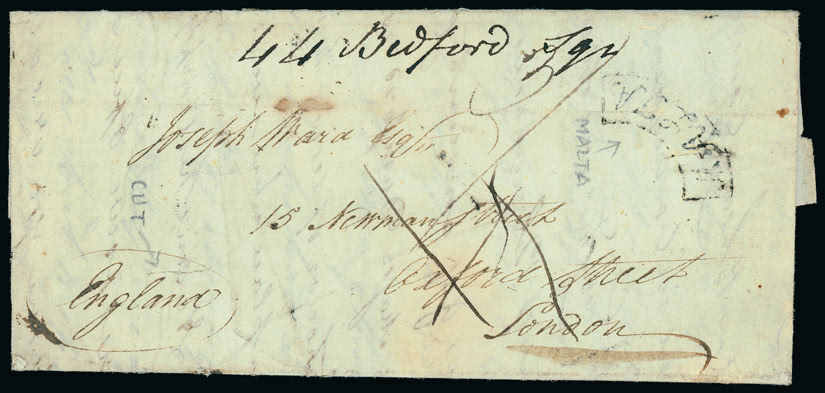 44 Bedford Sqr
Joseph Ward Esqr
15 Newman Street
Oxford Street
London
England
MALTA
CUT